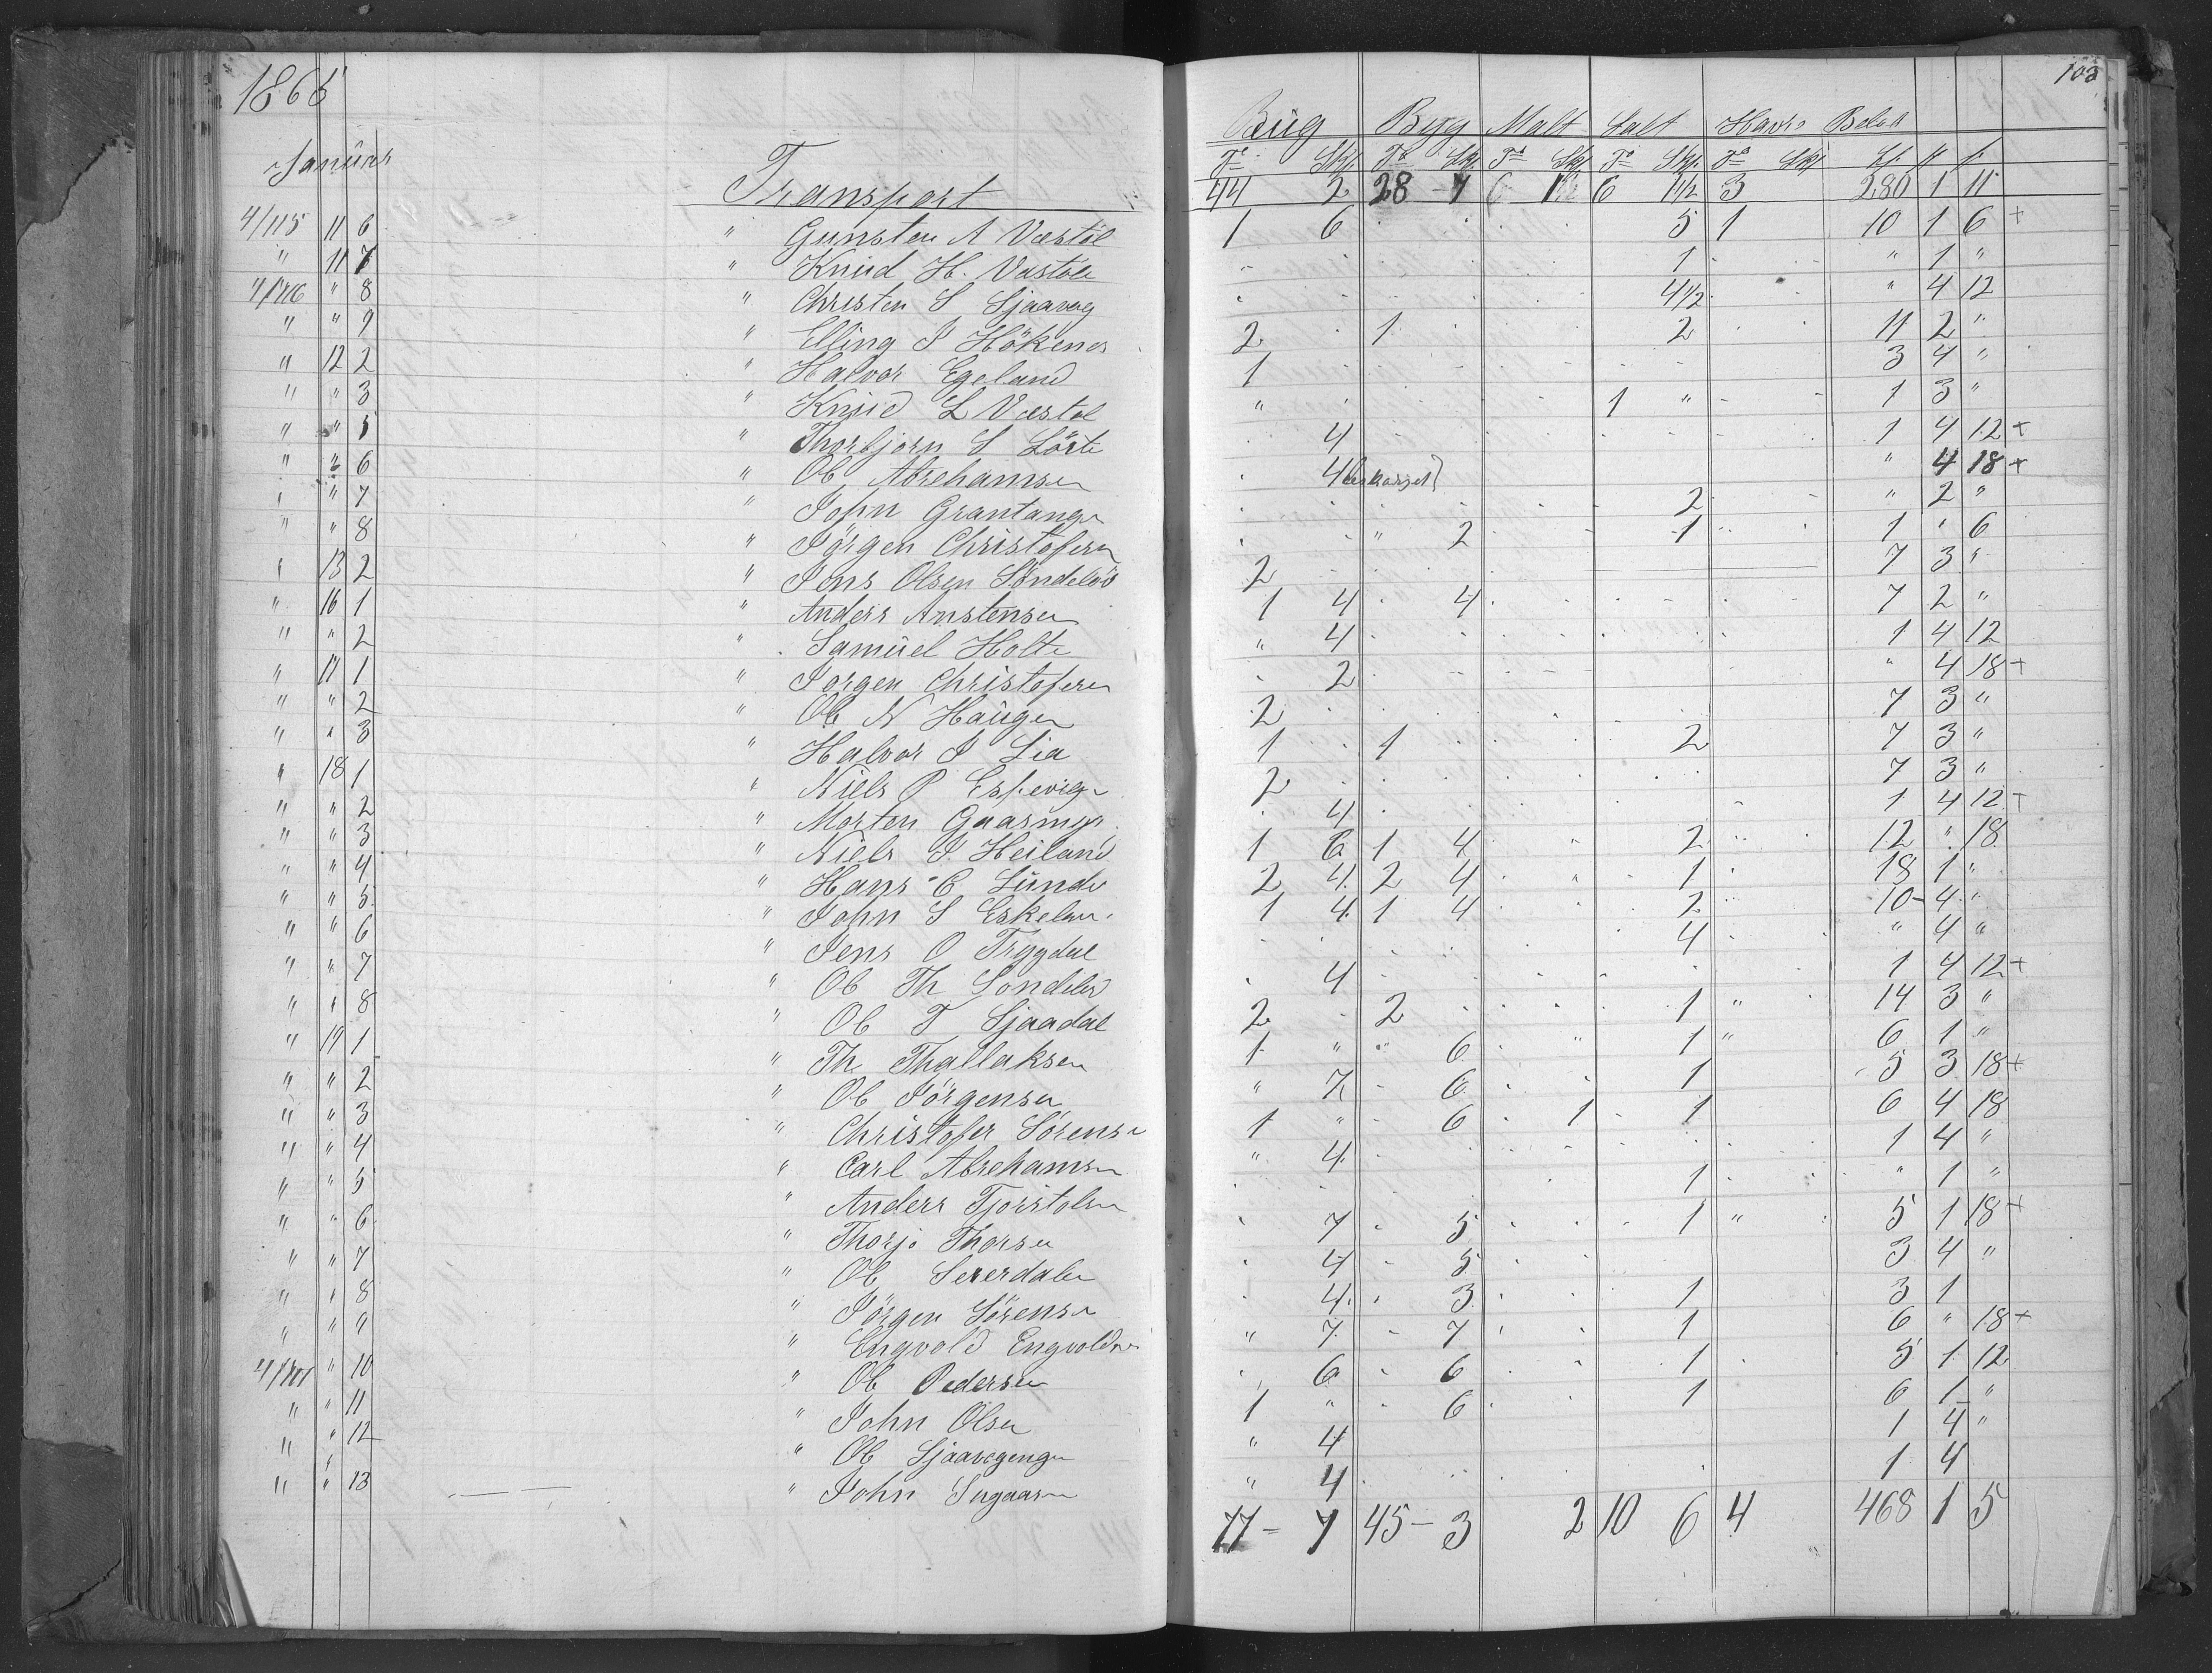 1865
103
Januar
Rüg Byg Malt Salt Havre Beløb
Td Skp Td Skp Td Skp Td Skp Td Skp
Transport 44 2 28 - 7 6 6 1 1/2 3 280 1 11
4/115 11 6 " Gunsten A Vestøl 1 6 5 1 10 1 6 +
" 11 7 " Knud H. Vestøl 1 " 1 "
" 8 " Christen S Sjaavag 4 1/2 " 4 12
" " 9 " Elling J Hökenes 2 1 2 11 2 "
" 12 2 " Halvor Egeland 1 3 4 "
" " 3 " Knud L Vestøl " 1 " 1 3 "
" " 5 " Thorbjørn S Lörte 4 1 4 12 +
" " 6 " Ole Abrehamsen 4 " 4 18 +
" " 7 " John Grantangen 2 " 2 "
" " 8 " Jörgen Christofersen " 2 1 1 " 6
" 13 2 " Jens Olsen Söndelöv 2 7 3 "
" 16 1 " Anders Anstensen 1 4 4 7 2 "
" " 2 " Samüel Holte " 4 1 4 12
" 17 1 " Jorgen Christofersen 2 " 4 18 +
" " 2 " Ole N Haügen 2 7 3 "
" " 3 " Halvor J Lia 1 1 2 7 3 "
" 18 1 " Niels P Espevigen 2 7 3 "
" " 2 " Morten Gaasmyr 4 1 4 12 +
" " 3 " Niels J Heiland 1 6 1 4 2 12 " 18
" " 4 " Hans C Lünde 2 4 2 4 1 18 1 "
" " 5 " John S Eskeland 1 4 1 4 2 10 - 4 "
" " 6 " Jens O Trygdal 4 " 4 "
" " 7 " Ole Th Söndeled 4 1 4 12 +
" " 8 " Ole T Sjaadal 2 2 1 " 14 3 "
" 19 1 " Th Thallaksen 1 " " 6 " 1 " 6 1 "
" " 2 " Ole Jörgensen " 7 - 6 1 5 3 18 +
" " 3 " Christofer Sörensen 1 " 6 1 1 6 4 18
" " 4 " Carl Abrehamsen " 4 1 4 "
" " 5 " Anders Tjorstolsen 1 " 1 "
" " 6 " Thorjo Thorsen 7 5 1 " 5 1 18 +
" " 7 " Ole Sererdalen 4 5 3 4 "
" " 8 " Jörgen Sörensen 4 3 1 3 1
" " 9 " Engvold Engvoldsen " 7 7 1 6 " 18 +
" 10 " Ole Pedersen 6 6 1 5 1 12
" " 11 " John Olsen 1 " 6 1 6 1 "
" " 12 " Ole Sjaavagengen " 4 1 4 "
" " 13 " John " 4 1 4
77 - 7 45 - 3 2 10 6 4 468 1 5